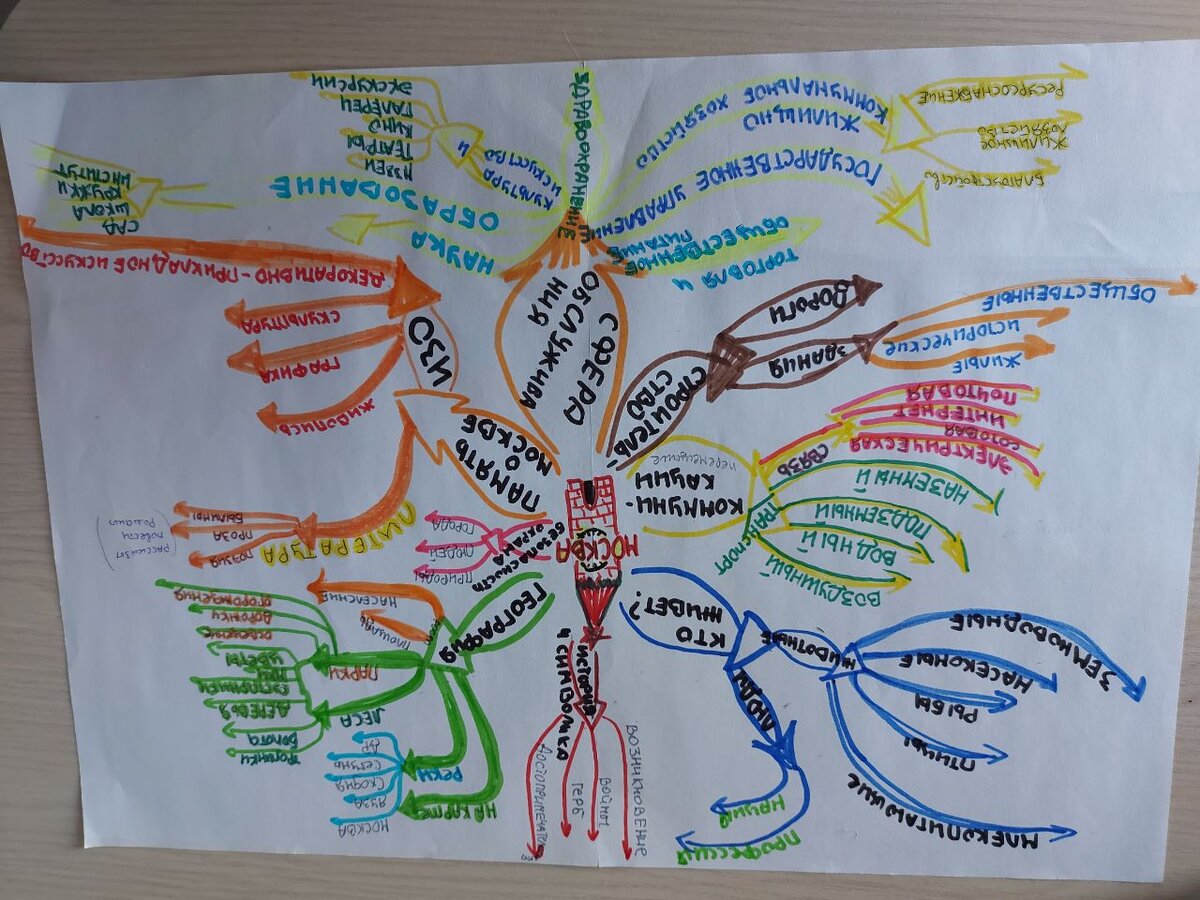 МОСКВА
ИСТОРИЯ
И СИМВОЛИКА
ВОЗНИКНОВЕНИЕ
ВОЙНЫ
ГЕРБ
ГЕОГРАФИЯ
НА КАРТЕ
РЕКИ
МОСКВА
ЯУЗА
СХОДНЯ
СЕТУНЬ
ДР.
ЛЕСА
ТРОПИНКИ
БОЛОТА
ДЕРЕВЬЯ
ПАРКИ
ЦВЕТЫ
ОСВЕЩЕНИЕ
ДОРОЖКИ
ОГОРОЖДЕНИЯ
ПЛОЩАДЬ
НАСЕЛЕНИЕ
БЕЗОПАСНОСТЬ
ОХРАНА
ПРИРОДЫ
ЛЮДЕЙ
ГОРОДА
ПАМЯТЬ
О
МОСКВЕ
ЛИТЕРАТУРА
ПОЭЗИЯ
ПРОЗА
рассказы
повести
БЫЛИНЫ
ИЗО
ЖИВОПИСЬ
ГРАФИКА
СКУЛЬПТУРА
ДЕКОРАТИВНО - ПРИКЛАДНОЕ ИСКУССТВО
СФЕРА
ОБСЛУЖИВА
НИЯ
НАУКА
ОБРАЗОВАНИЕ
САД
ШКОЛА
КРУЖКИ
ИНСТИТУТ
КУЛЬТУРА И
ИСКУСТВО
ТЕАТРЫ
КИНО
ГАЛЕРЕИ
ЭКСКУРСИИ
ЗДРАВООХРАНЕНИЕ
ЖИЛИЩНО
КОММУНАЛЬНОЕ ХОЗЯЙСТВО
РЕСУРСОСНАБЖЕНИЕ
ЖИЛИЩНОЕ
ХОЗЯЙСТВО
БЛАГОУСТРОЙСТВО
ГОСУДАРСТВЕННОЕ УПРАВЛЕНИЕ
ТОРГОВЛЯ И
ОБЩЕСТВЕННОЕ
ПИТАНИЕ
СТРОИТЕЛЬ-
СТВО
ДОРОГИ
ЗДАНИЯ
ОБЩЕСТВЕННЫЕ
ИСТОРИЧЕСКИЕ
ЖИЛЫЕ
КОММУНИ-
КАЦИИ
перемещение
СВЯЗЬ
ПОЧТОВАЯ
ИНТЕРНЕТ
СОТОВАЯ
ЭЛЕКТРИЧЕСКАЯ
ТРАНСПОРТ
НАЗЕМНЫЙ
ПОДЗЕМНЫЙ
ВОДНЫЙ
ВОЗДУШНЫЙ
КТО
ЖИВЕТ?
ЖИВОТНЫЕ
ЗЕМНОВОДНЫЕ
НАСЕКОМЫЕ
РЫБЫ
ПТИЦЫ
МЛЕКОПИТАЮЩИЕ
ЛЮДИ
НАЦИИ
ПРОФЕССИИ